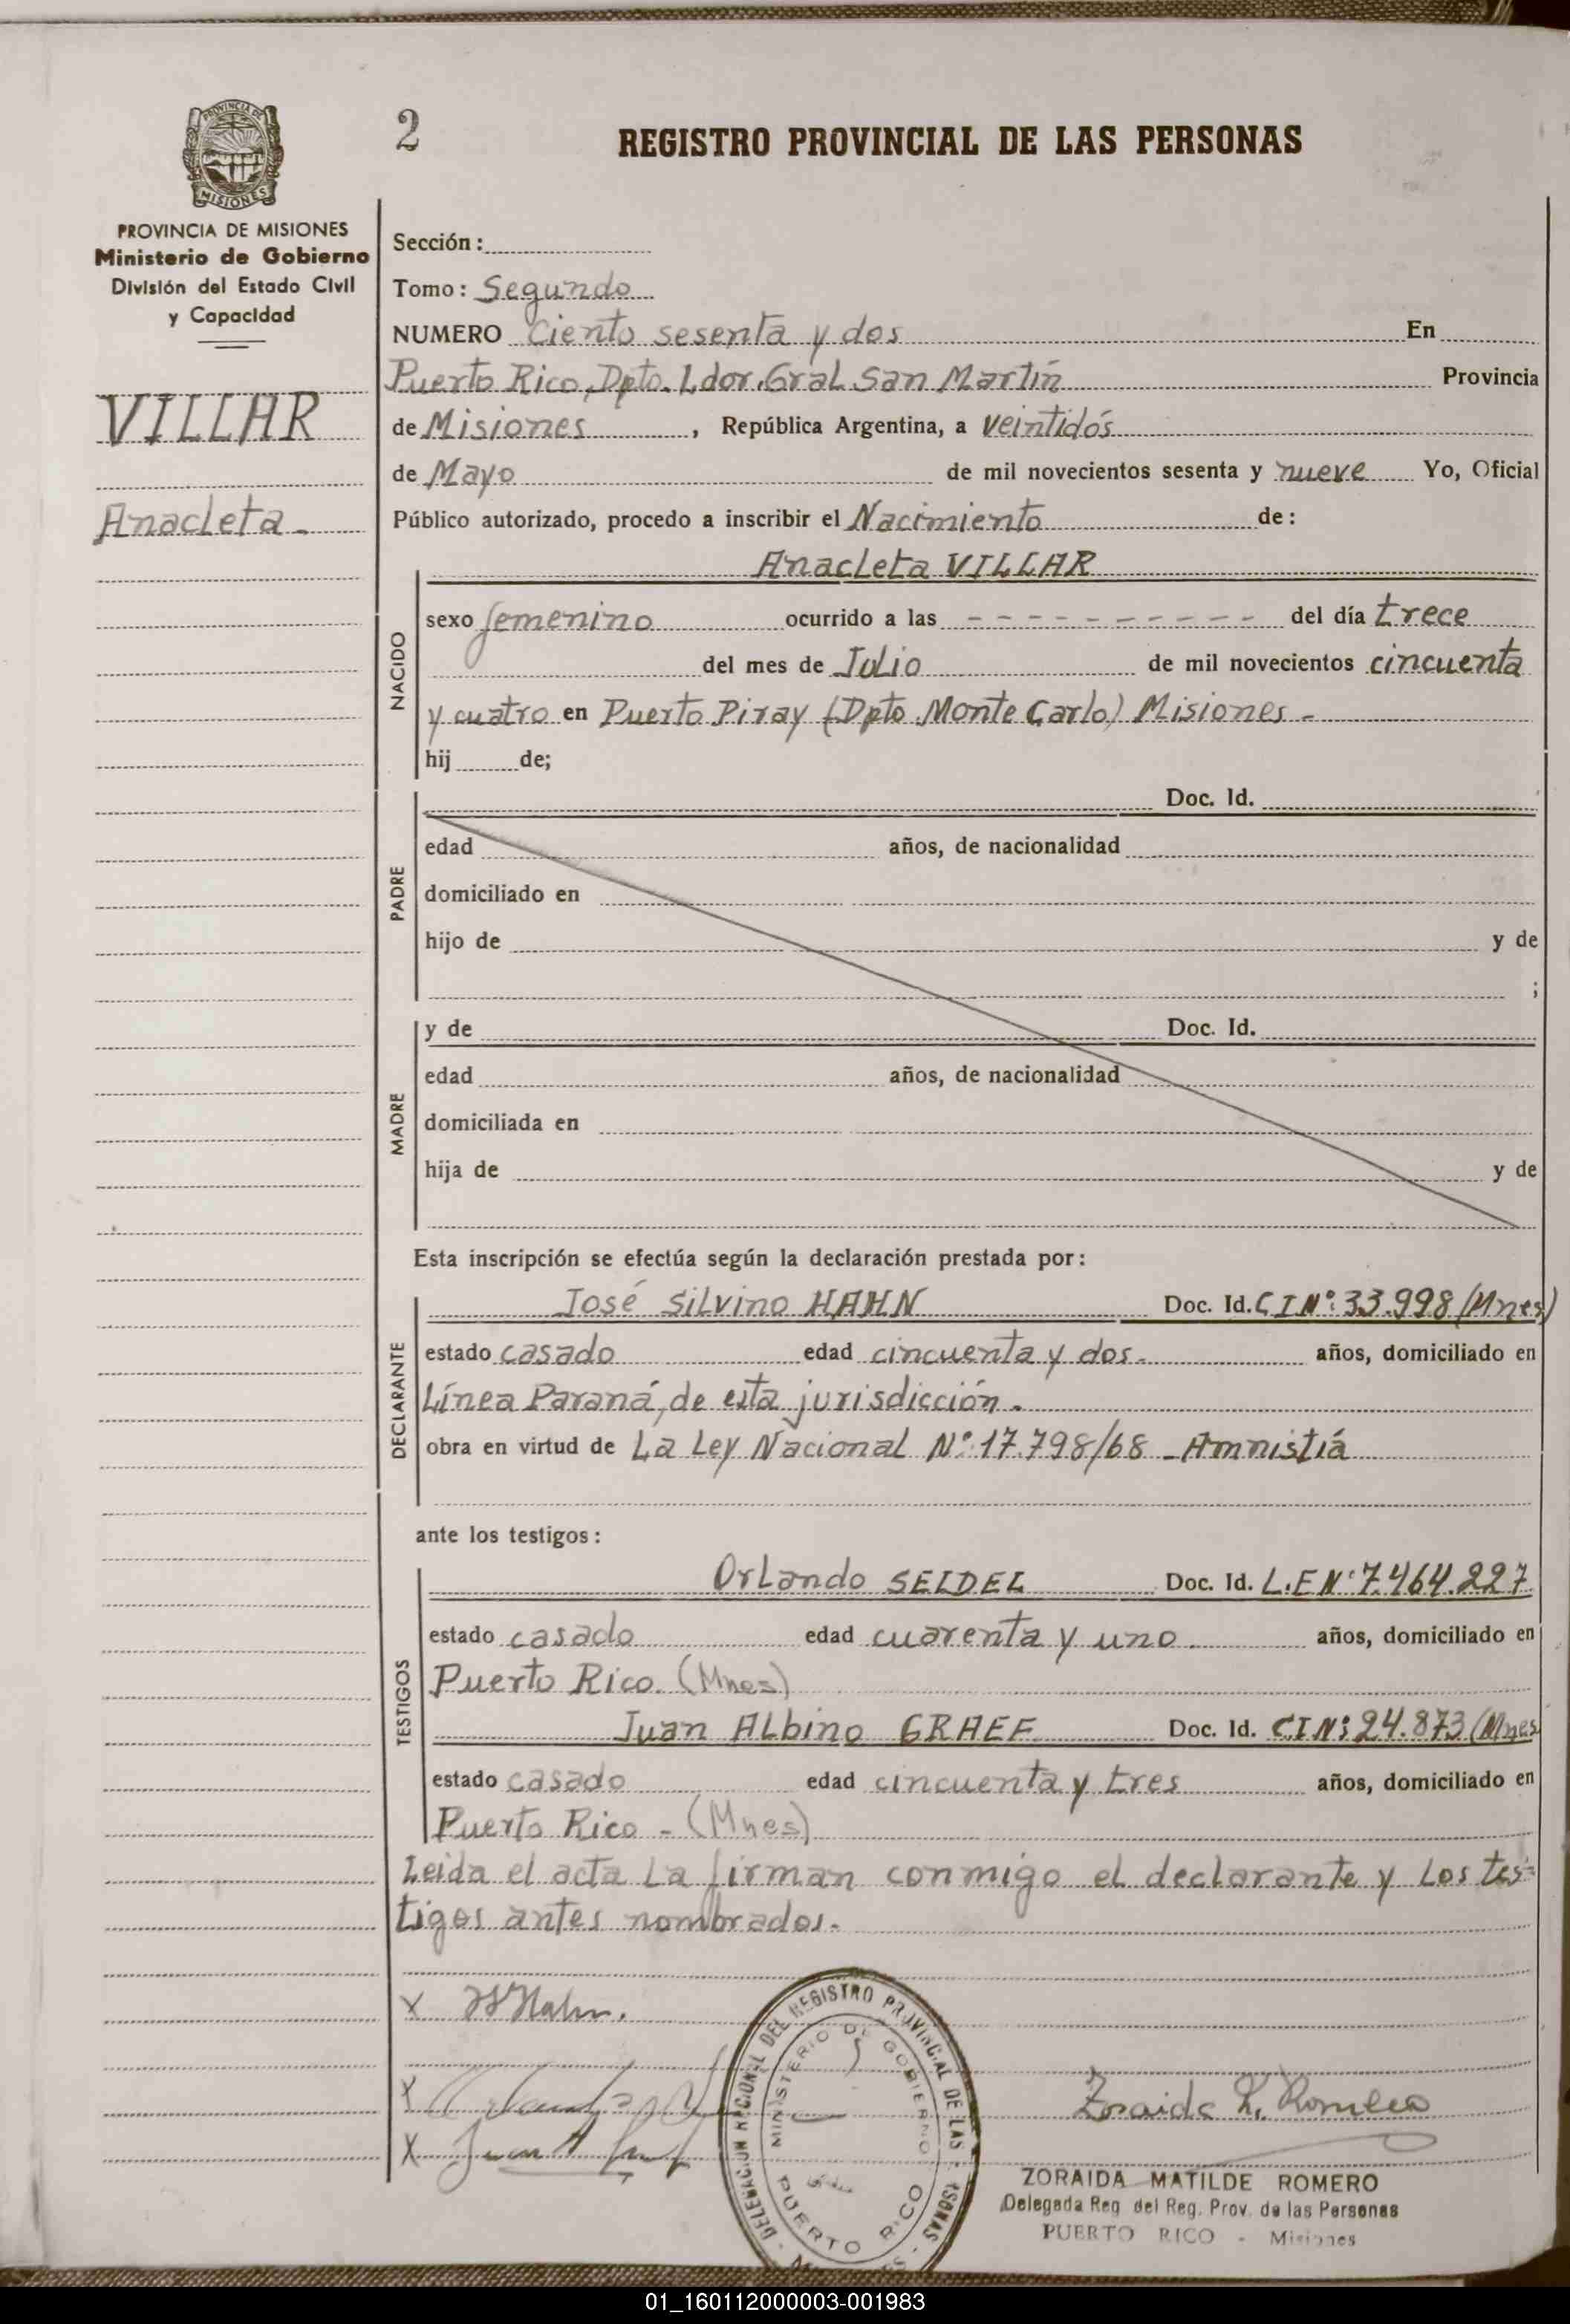 2
REGISTRO PROVINCIAL DE LAS PERSONAS
PROVINCIA DE MISIONES
MISIONES
PROVINCIA DE MISIONES
Ministerio de Gobierno
División del Estado Civil
y Capacidad
VILLAR
Anacleta.
Sección:
Tomo: Segundo
NUMERO Ciento sesenta y dos En
Puerto Rico, Dpto. Ldor. Gral San Martín Provincia
de Misiones, República Argentina, a veintidós
de Mayo de mil novecientos sesenta y nueve Yo, Oficial
Público autorizado, procedo a inscribir el Nacimiento de:
Anacleta VILLAR
NACIDO
sexo femenino ocurrido a las - - - - - - - - - - del día trece
del mes de Julio de mil novecientos cincuenta
y cuatro en Puerto Piray (Dpto Monte Carlo) Misiones -
hij de;
PADRE
Doc. Id.
edad años, de nacionalidad
domiciliado en
hijo de y de
;
MADRE
y de Doc. Id.
edad años, de nacionalidad
domiciliada en
hija de y de
Esta inscripción se efectúa según la declaración prestada por:
DECLARANTE
José Silvino HAHN Doc. Id. C I Nº: 33.998 (Mnes)
estado casado edad cincuenta y dos. años, domiciliado en
Línea Paraná, de esta jurisdicción.
obra en virtud de La Ley Nacional Nº 17.798/68 - Amnistía
ante los testigos:
TESTIGOS
Orlando SEIDEL Doc. Id. L.E Nº 7.464.227
estado casado edad cuarenta y uno. años, domiciliado en
Puerto Rico. (Mnes)
Juan Albino GRAEF Doc. Id. C.I Nº: 24.873 (Mnes
estado casado edad cincuenta y tres años, domiciliado en
Puerto Rico - (Mnes)
Leida el acta la firman conmigo el declarante y los tes=
tigos antes nombrados.
X Hahn.
X
X Juan A
DELEGACION REGIONAL DEL REGISTRO PROVINCIAL DE LAS PERSONAS
MINISTERIO DE GOBIERNO
PUERTO RICO
Zoraida Romero
ZORAIDA MATILDE ROMERO
Delegada Reg del Reg. Prov. de las Personas
PUERTO RICO - Misiones
01_160112000003-001983